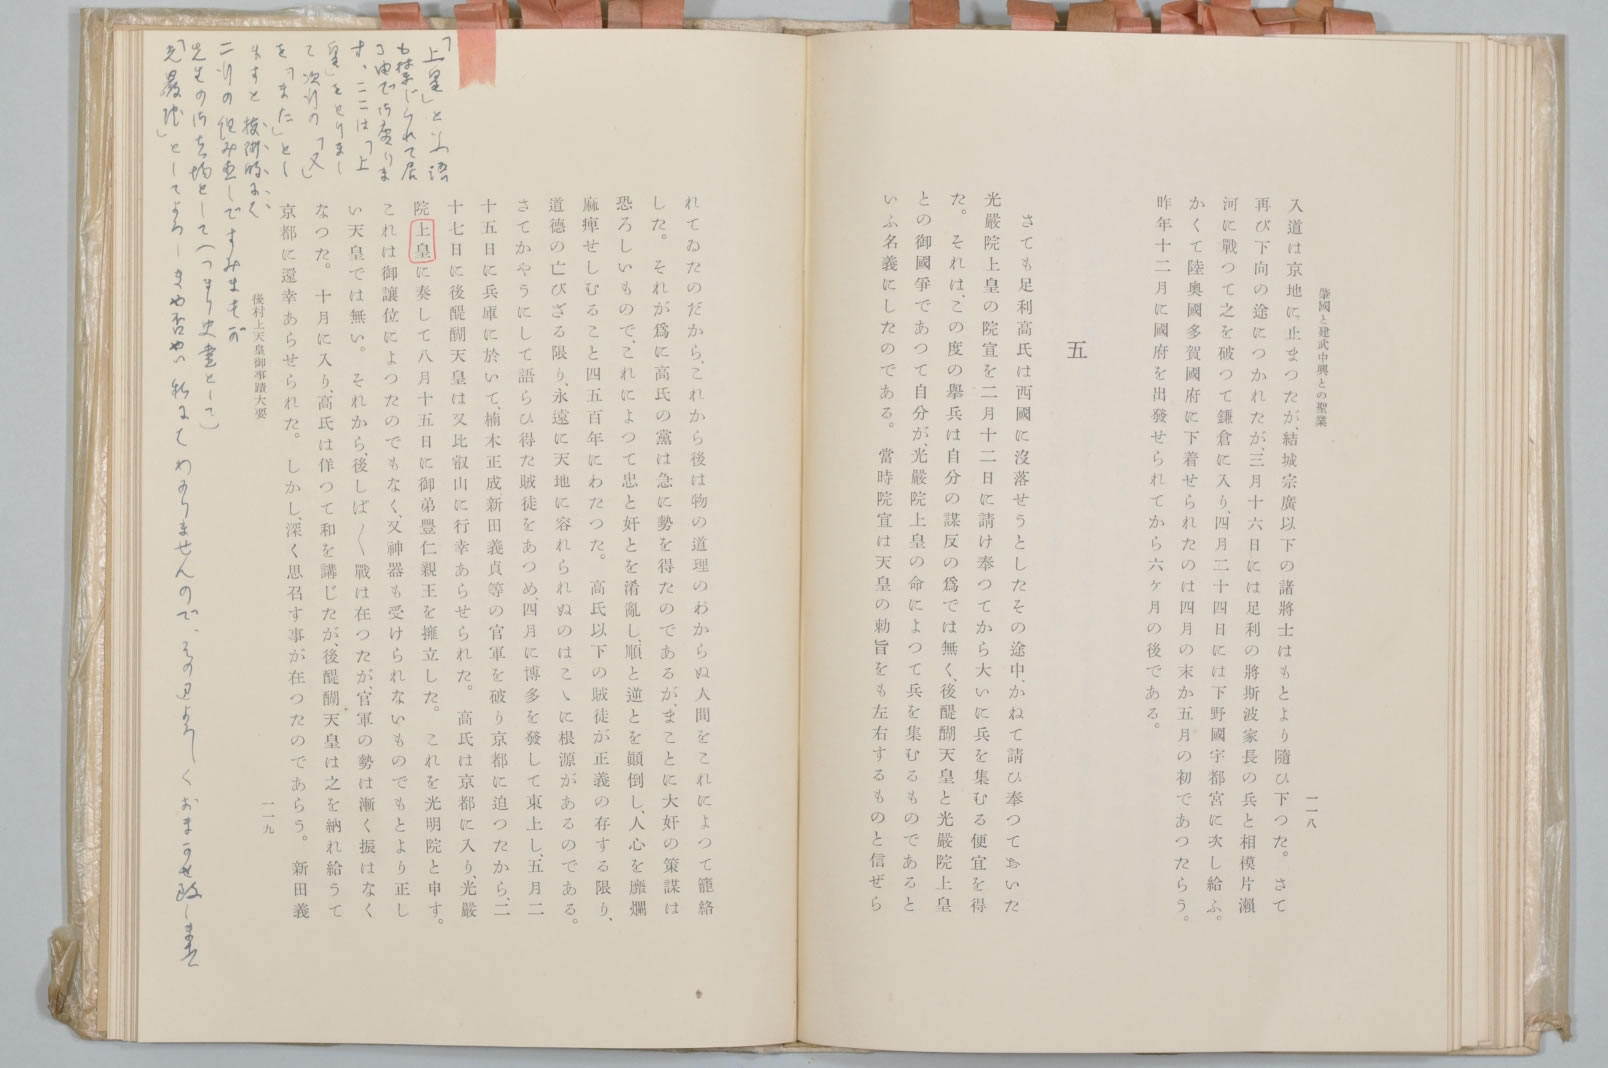 肇國と建武中興との聖業
一一八
入道は京地に止まつたが、結城宗廣以下の諸將士はもとより隨ひ下つた。さて
再び下向の途につかれたが、三月十六日には足利の將斯波家長の兵と相模片瀨
河に戰つて之を破つて鎌倉に入り、四月二十四日には下野國宇都宮に次し給ふ。
かくて陸奧國多賀國府に下着せられたのは四月の末か五月の初であつたらう。
昨年十二月に國府を出發せられてから六ヶ月の後である。
五
さても足利高氏は西國に沒落せうとしたその途中、かねて請ひ奉つておいた
光嚴院上皇の院宣を二月十二日に請け奉つてから大いに兵を集むる便宜を得
た。それは、この度の擧兵は自分の謀反の爲では無く、後醍醐天皇と光嚴院上皇
との御國爭であつて自分が、光嚴院上皇の命によつて兵を集むるものであると
いふ名義にしたのである。當時院宣は天皇の勅旨をも左右するものと信ぜら
れてゐたのだから、これから後は物の道理のわからぬ人間をこれによつて籠絡
した。それが爲に高氏の黨は急に勢を得たのであるが、まことに大奸の策謀は
恐ろしいもので、これによつて忠と奸とを淆亂し、順と逆とを顚倒し、人心を靡爛
麻痺せしむること四五百年にわたつた。高氏以下の賊徒が正義の存する限り、
道德の亡びざる限り、永遠に天地に容れられぬのはこゝに根源があるのである。
さてかやうにして語らひ得た賊徒をあつめ、四月に博多を發して東上し、五月二
十五日に兵庫に於いて、楠木正成新田義貞等の官軍を破り京都に迫つたから、二
十七日に後醍醐天皇は又比叡山に行幸あらせられた。高氏は京都に入り、光嚴
院上皇に奏して八月十五日に御弟豐仁親王を擁立した。これを光明院と申す。
これは御讓位によつたのでもなく、又神器も受けられないものでもとより正し
い天皇では無い。それから、後しば〳〵戰は在つたが、官軍の勢は漸く振はなく
なつた。十月に入り、高氏は佯つて和を講じたが、後醍醐天皇は之を納れ給うて
京都に還幸あらせられた。しかし、深く思召す事が在つたのであらう。新田義
後村上天皇御事蹟大要
一一九
「上皇」といふ語
も禁じられて居
る由で御座りま
す、ここは「上
皇」をとりまし
て次行の「又」
を「また」とし
ますと
二行の組み直しですみますが
先生の御立場として(つまり史書として)
としてよろしきや否や 私にてわかりませんので、その辺よろしくおまかせ致します